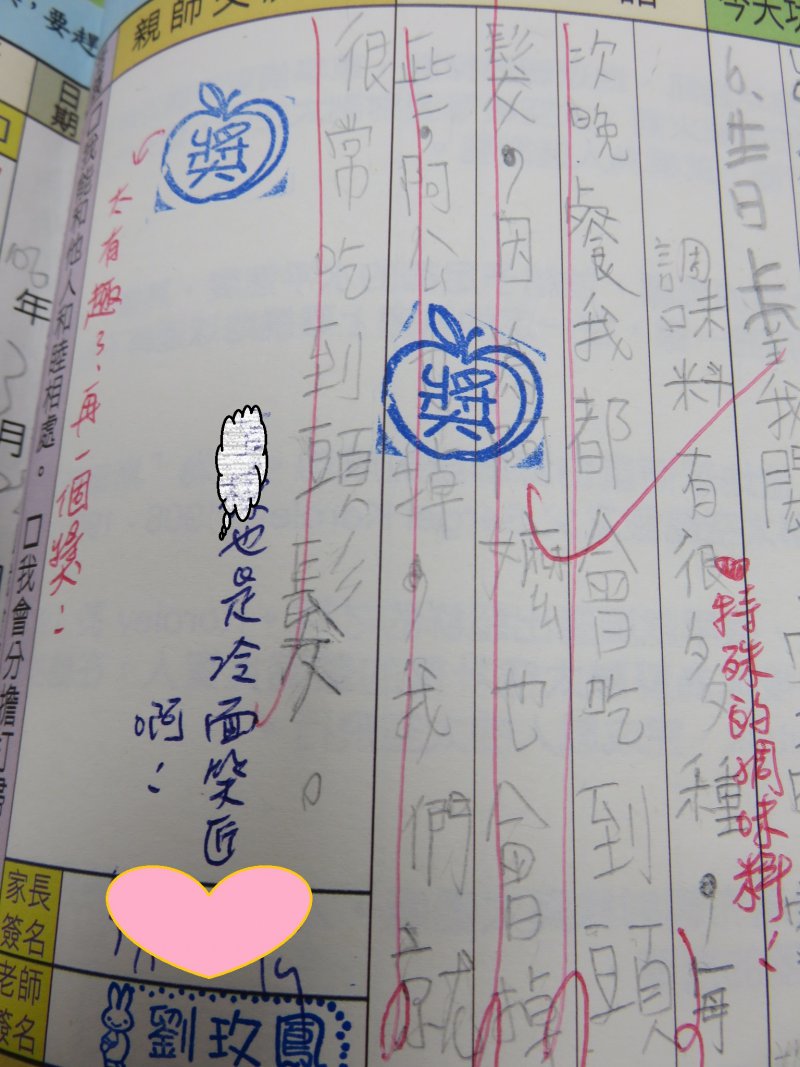 今天功
6.生日
特殊的調味料！
調味料有很多種，每
次晚餐我都會吃到頭
髮，因嬤也會掉
些，阿公掉，我們就
很常吃到頭髮。
獎
親師交
獎
太有趣了，再一個獎！
也是冷面笑匠
啊！
家長
簽名
老師
簽名
劉玫鳳
我能和他人和睦相處。□我會分擔
，要趕
日期
年
月